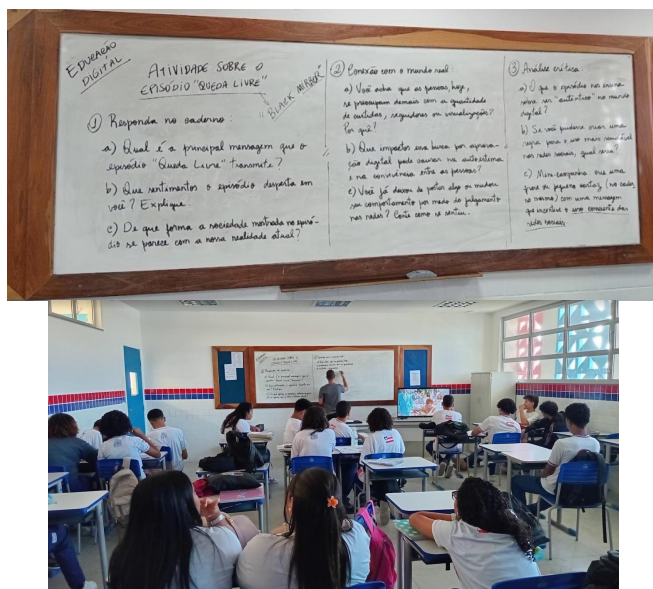 EDUCAÇÃO
DIGITAL
ATIVIDADE SOBRE O
EPISÓDIO "QUEDA LIVRE"
"BLACK MIRROR"
① Responda no caderno:
a) Qual é a principal mensagem que o
episódio "Queda Livre" transmite?
b) Que sentimentos o episódio desperta em
você? Explique.
c) De que forma a sociedade mostrada no episó-
dio se parece com a nossa realidade atual?
② Conexão com o mundo real:
a) Você acha que as pessoas, hoje,
se preocupam demais com a quantidade
de curtidas, seguidores ou visualizações?
Por quê?
b) Que impactos essa busca por aprova-
ção digital pode causar na autoestima
e na convivência entre as pessoas?
c) Você já deixou de postar algo ou mudou
seu comportamento por medo do julgamento
nas redes? Conte como se sentiu.
③ Análise crítica:
a) O que o episódio nos ensina
sobre ser "autêntico" no mundo
digital?
b) Se você pudesse criar uma
regra para o uso mais saudável
das redes sociais, qual seria?
c) Mini-campanha: crie uma
frase ou pequeno cartaz (no caderno
mesmo) com uma mensagem
que incentive o uso consciente das
redes sociais.